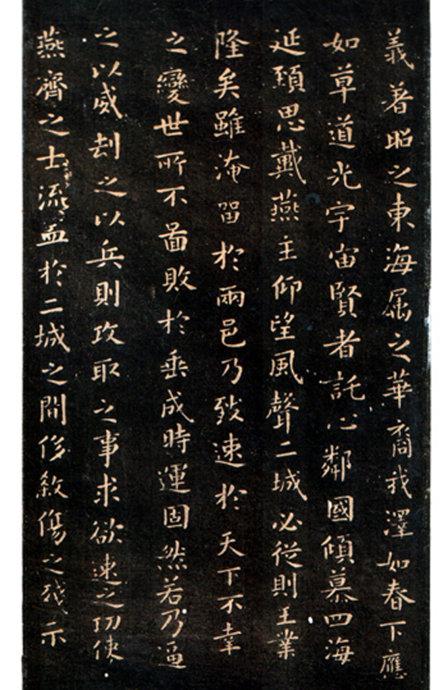 義著昭之東海屬之華裔我澤如春下應
如草道光宇宙賢者託心鄰國傾慕四海
延頸思戴燕主仰望風聲二城必從則王業
隆矣雖淹留於兩邑乃致速於天下不幸
之變世所不圖敗於垂成時運固然若乃逼
之以威劫之以兵則攻取之事求欲速之功使
燕齊之士流血於二城之間侈殺傷之殘示